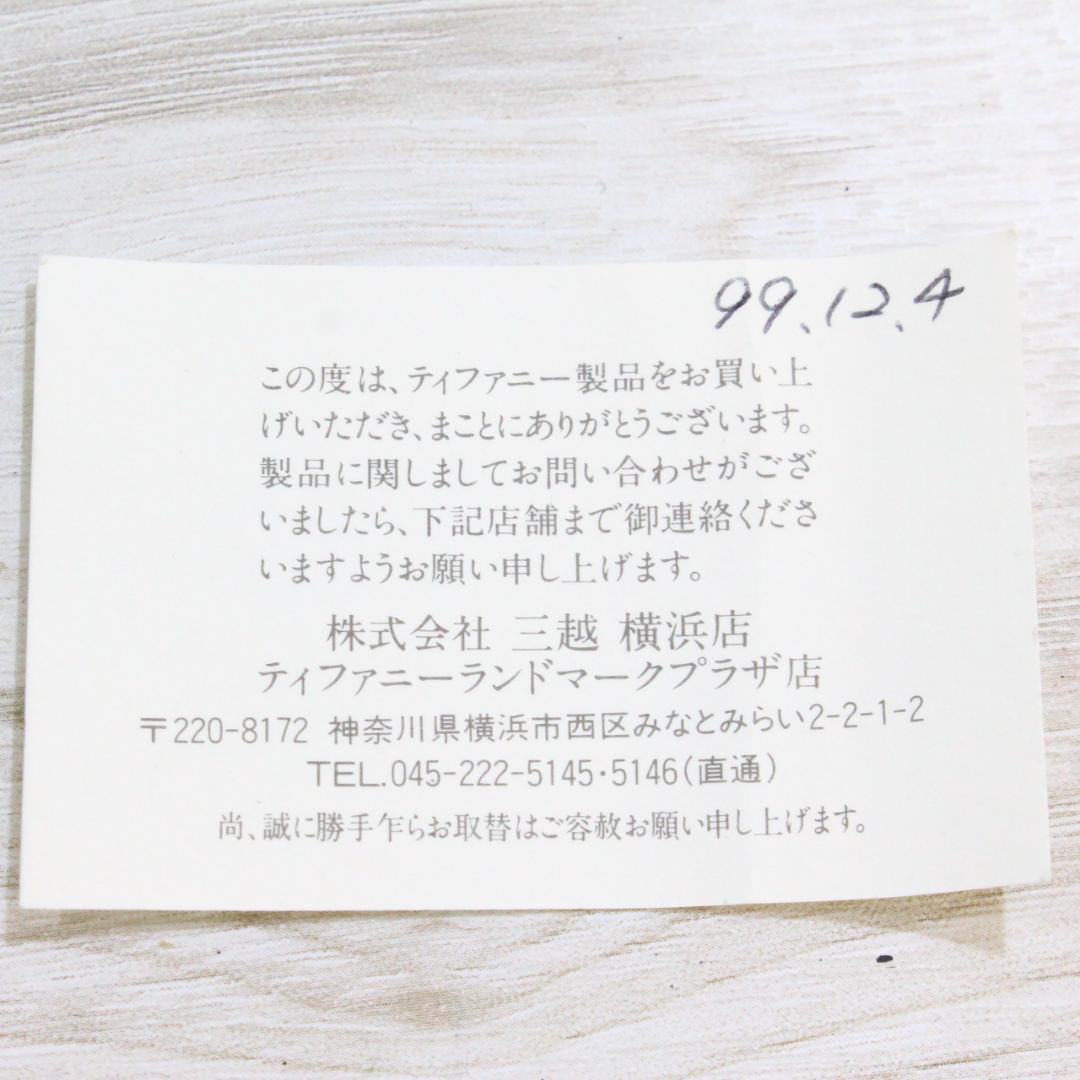 99.12.4
この度は、ティファニー製品をお買い上
げいただき、まことにありがとうございます。
製品に関しましてお問い合わせがござ
いましたら、下記店舗まで御連絡くださ
いますようお願い申し上げます。
株式会社 三越 横浜店
ティファニーランドマークプラザ店
〒220-8172 神奈川県横浜市西区みなとみらい2-2-1-2
TEL.045-222-5145・5146(直通)
尚、誠に勝手乍らお取替はご容赦お願い申し上げます。